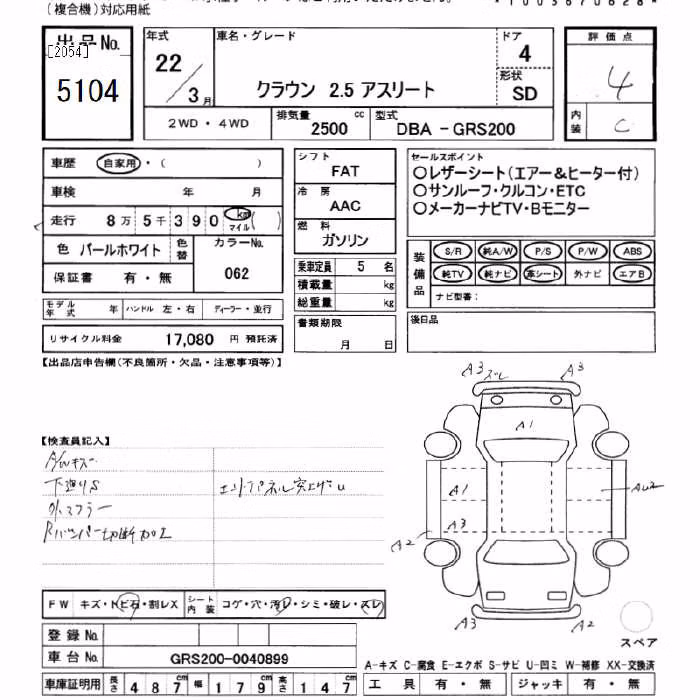 (複合機)対応用紙
出品No.
[2054]
5104
年式
22/3月
車名・グレード
クラウン 2.5 アスリート
ドア
4
形状
SD
評価点
4
内装
C
2WD・4WD
排気量
2500 cc
型式
DBA - GRS200
車歴 自家用・( )
車検 年 月
走行 8万5千390 km マイル ( )
色 パールホワイト 色替
カラーNo.
062
保証書 有・無
モデル年式 年 ハンドル 左・右 ディーラー・並行
リサイクル料金 17,080 円 預託済
シフト
FAT
冷房
AAC
燃料
ガソリン
乗車定員 5 名
積載量 kg
総重量 kg
書類期限
月 日
セールスポイント
○レザーシート(エアー&ヒーター付)
○サンルーフ・クルコン・ETC
○メーカーナビTV・Bモニター
装備品
S/R 純A/W P/S P/W ABS
純TV 純ナビ 革シート 外ナビ エアB
ナビ型番:
後日品
【出品店申告欄(不良箇所・欠品・注意事項等)】
【検査員記入】
A/Wキズ
下廻りS
外マフラー
Rバンパー切断加工
エンドパネル突上げU
A3 ズレ A3
A1
A1
A3
A2
AU2
A3 A2
スペア
FW キズ・トビ石・割レX シート内装 コゲ・穴・汚レ・シミ・破レ・スレ
登録No.
車台No. GRS200-0040899
車庫証明用 長さ 487cm 幅 179cm 高さ 147cm
A-キズ C-腐食 E-エクボ S-サビ U-凹ミ W-補修 XX-交換済
工具 有・無 ジャッキ 有・無